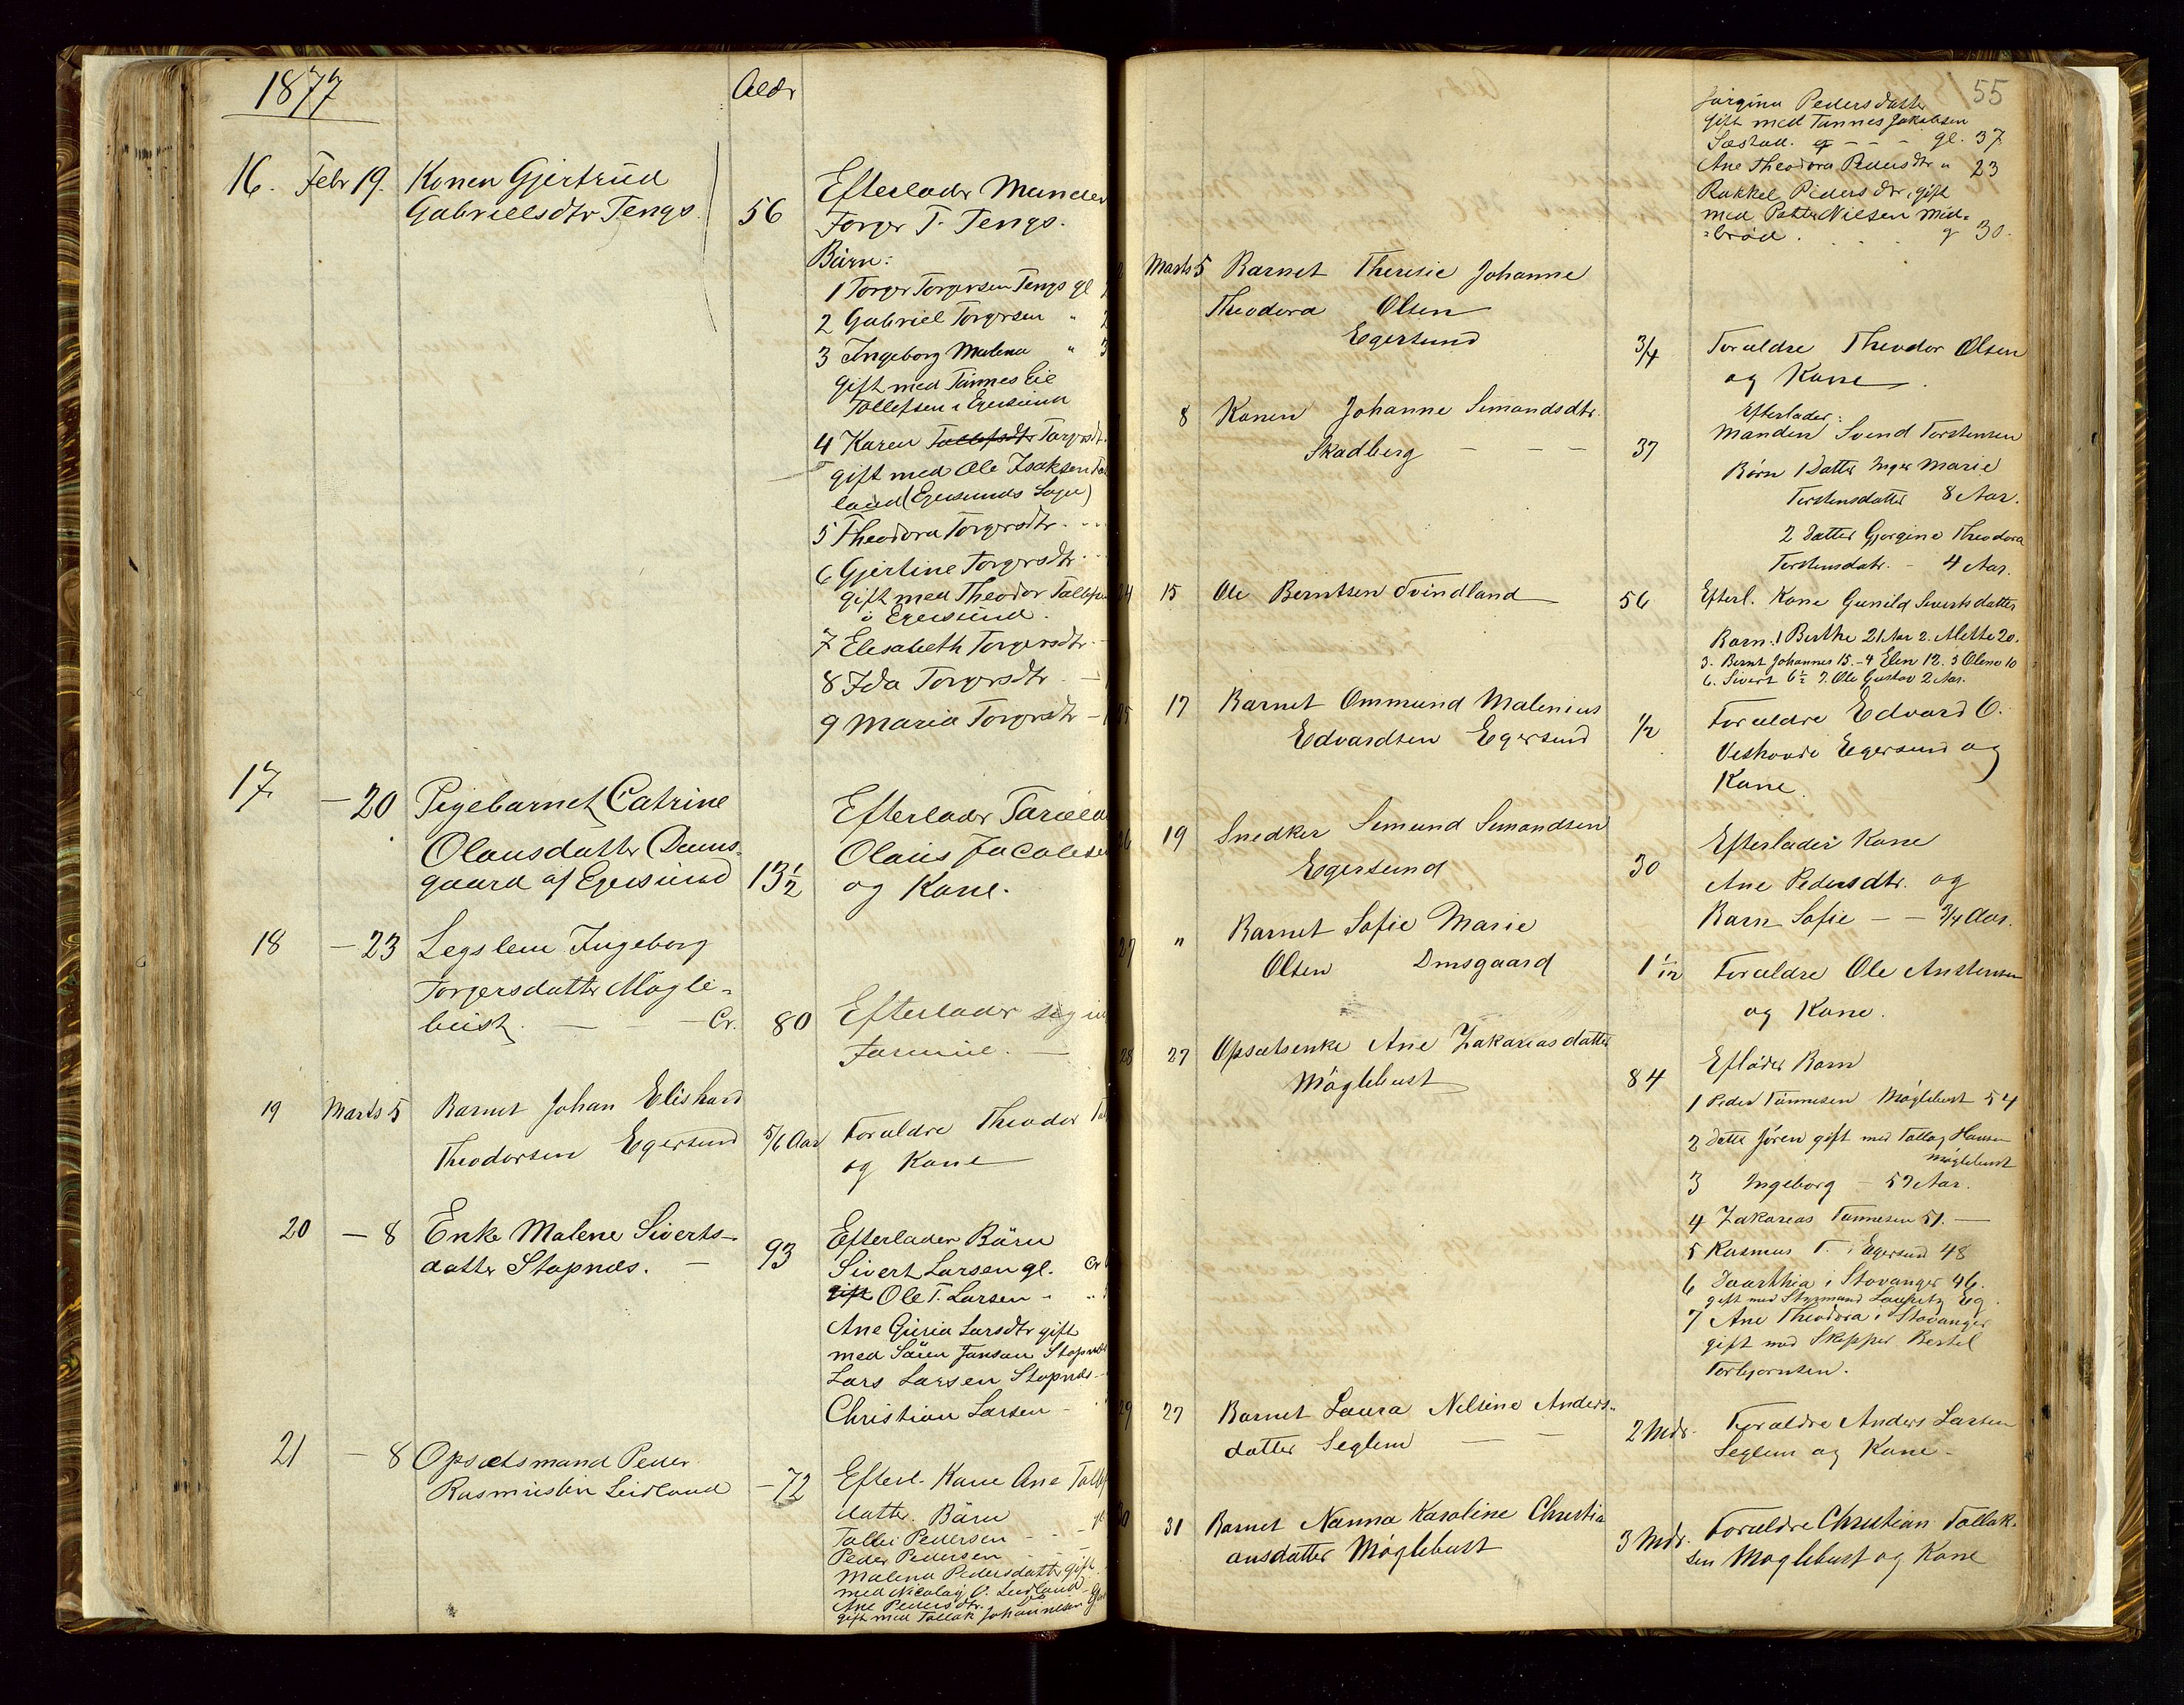 1877
Aldr
16. Febr 19. Konen Gjertrud
Gabrielsdtr Tengs 56
Efterlader Manden
Torger T. Tengs.
Börn:
1 Torger Torgersen Tengs gl
2 Gabriel Torgersen "
3 Ingeborg Malena "
gift med Tönnes Eie
Tollefsen i Egersund
4 Karen Tollefsdtr Torgersdtr
gift med Ole Isaksen
land (Egersunds Sogn)
5 Theodora Torgersdtr
6 Gjertine Torgersdtr
gift med Theodor Tollefsen
i Egersund.
7 Elisabeth Torgersdtr
8 Ida Torgersdtr
9 Maria Torgersdtr
17 - 20 Pigebarnet Catrine
Olausdatter Dams-
gaard af Egersund 13 1/2
Efterlader
Olaus Jacobsen
og Kone.
18 - 23 Legslem Ingeborg
Torgersdatter Mögle-
bust - - Cr. 80
Efterlader sig in
Formue.
19 Marts 5 Barnet Johan Elishard
Theodorsen Egersund 5/6 Aar
Forældre Theodor
og Kone
20 - 8 Enke Malene Siverts-
datter Stapnes. - 93
Efterlader Börn
Sivert Larsen gl. Cr
gift Ole T. Larsen - "
Ane Guria Larsdtr gift
med Sören Jansen Stapnes
Lars Larsen Stapnes
Christian Larsen -
21 - 8 Opsætsmand Peder
Rasmussen Leidland - 72
Efterl. Kone Ane
datter. Börn
Peder Pedersen
Malena Pedersdatter gift
med Nicolay O. Leidland
Ane Pedersdtr.
gift med Tollak Johannesen
55
Jorgina Pedersdatter
gift med Tønnes Jakobsen
- - - gl. 37
Ane Theodora Pedersdtr " 23
Rakkel Pedersdtr. gift
med Petter Nilsen Mid-
-brød . . . g 30.
Marts 5 Barnet Theresie Johanne
Theodora Olsen
Egersund 3/4
Forældre Theodor Olsen
og Kone.
8 Konen Johanne Simondsdtr.
Skadberg - - - 37
Efterlader:
Manden Svend Torstensen
Børn 1 Datter Inger Marie
Torstensdatter 8 Aar.
2 Datter Gjorgine Theodora
Torstensdatr. - 4 Aar.
24 15 Ole Berntsen Tvindland 56
Efterl. Kone Gunild Sivertsdatter
Barn. 1 Berthe 21 Aar 2. Mette 20.
3. Bernt Johannes 15. - 4 Elen 12. 5 Olene 10
6. Sivert 6 1/2 7. Ole Gustav 2 Aar.
25 17 Barnet Ommund Malenius
Edvardsen Egersund 1/2
Forældre Edvard O.
Veshovde Egersund og
Kone.
26 19 Snedker Simund Simondsen
Egersund 30
Efterlader Kone
Ane Pedersdtr. og
Barn Sofie - - 3/4 Aar.
27 " Barnet Sofie Marie
Olsen Dmsgaard 1 1/12
Forældre Ole Anstensen
og Kone.
28 27 Opsætsenke Ane Zakariasdatter
Møglebust 84
Eflader Barn
1 Peder Tønnesen Møglebust 54
2 Datter Jøren gift med Tollag Hansen
Møglebust
3 Ingeborg - 57 Aar.
4 Zakarias Tønnesen 51. -
5 Rasmus T. i Egersund 48
6 Daarthia i Stavanger 46.
gift med Styrmand Lauritz Eg
7 Ane Theodora i Stavanger
gift med Skipper Bertel
Torbjornsen.
29 27 Barnet Laura Nilsine Anders-
datter Seglem - - 2 Mdr.
Forældre Anders Larsen
Seglem og Kone -
30 31 Barnet Nanna Karoline Christi
ansdatter Møglebust 3 Mdr.
Forældre Christian Tollak-
sen Møglebust og Kone